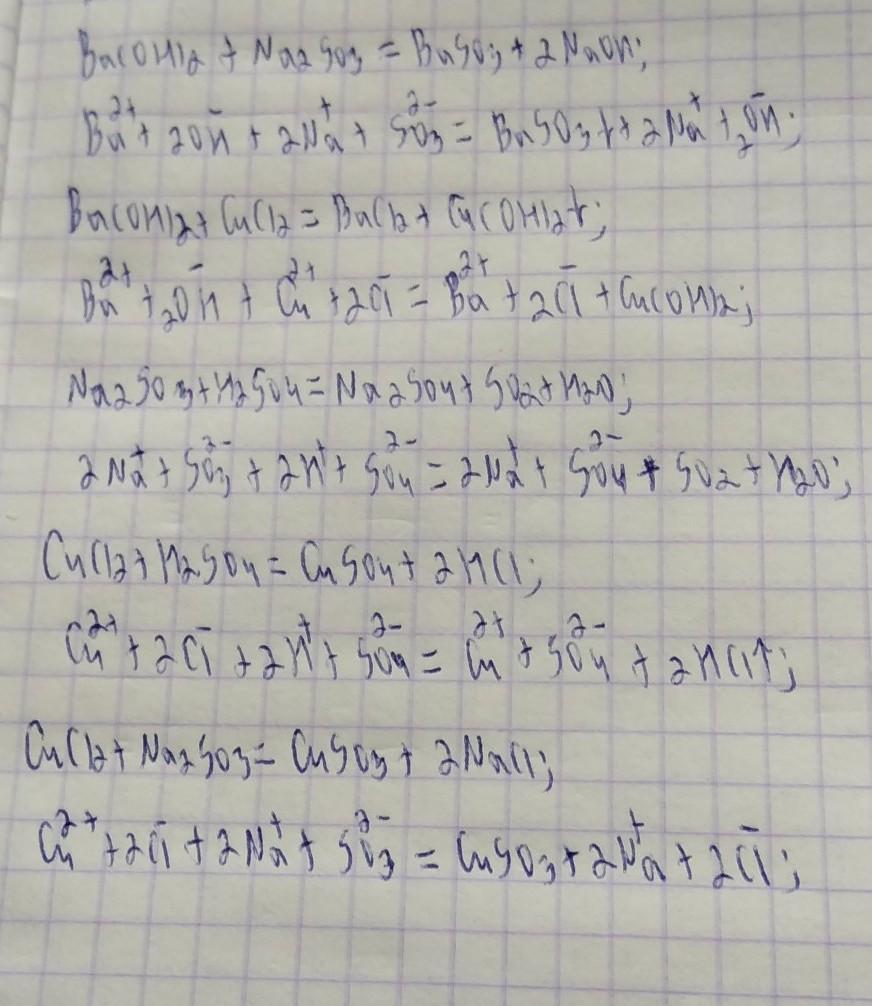 Ba(OH)2 + Na2SO3 = BaSO3 + 2NaOH;
Ba²⁺ + 2OH⁻ + 2Na⁺ + SO3²⁻ = BaSO3↓ + 2Na⁺ + 2OH⁻;
Ba(OH)2 + CuCl2 = BaCl2 + Cu(OH)2↓;
Ba²⁺ + 2OH⁻ + Cu²⁺ + 2Cl⁻ = Ba²⁺ + 2Cl⁻ + Cu(OH)2;
Na2SO3 + H2SO4 = Na2SO4 + SO2 + H2O;
2Na⁺ + SO3²⁻ + 2H⁺ + SO4²⁻ = 2Na⁺ + SO4²⁻ + SO2 + H2O;
CuCl2 + H2SO4 = CuSO4 + 2HCl;
Cu²⁺ + 2Cl⁻ + 2H⁺ + SO4²⁻ = Cu²⁺ + SO4²⁻ + 2HCl↑;
CuCl2 + Na2SO3 = CuSO3 + 2NaCl;
Cu²⁺ + 2Cl⁻ + 2Na⁺ + SO3²⁻ = CuSO3 + 2Na⁺ + 2Cl⁻;